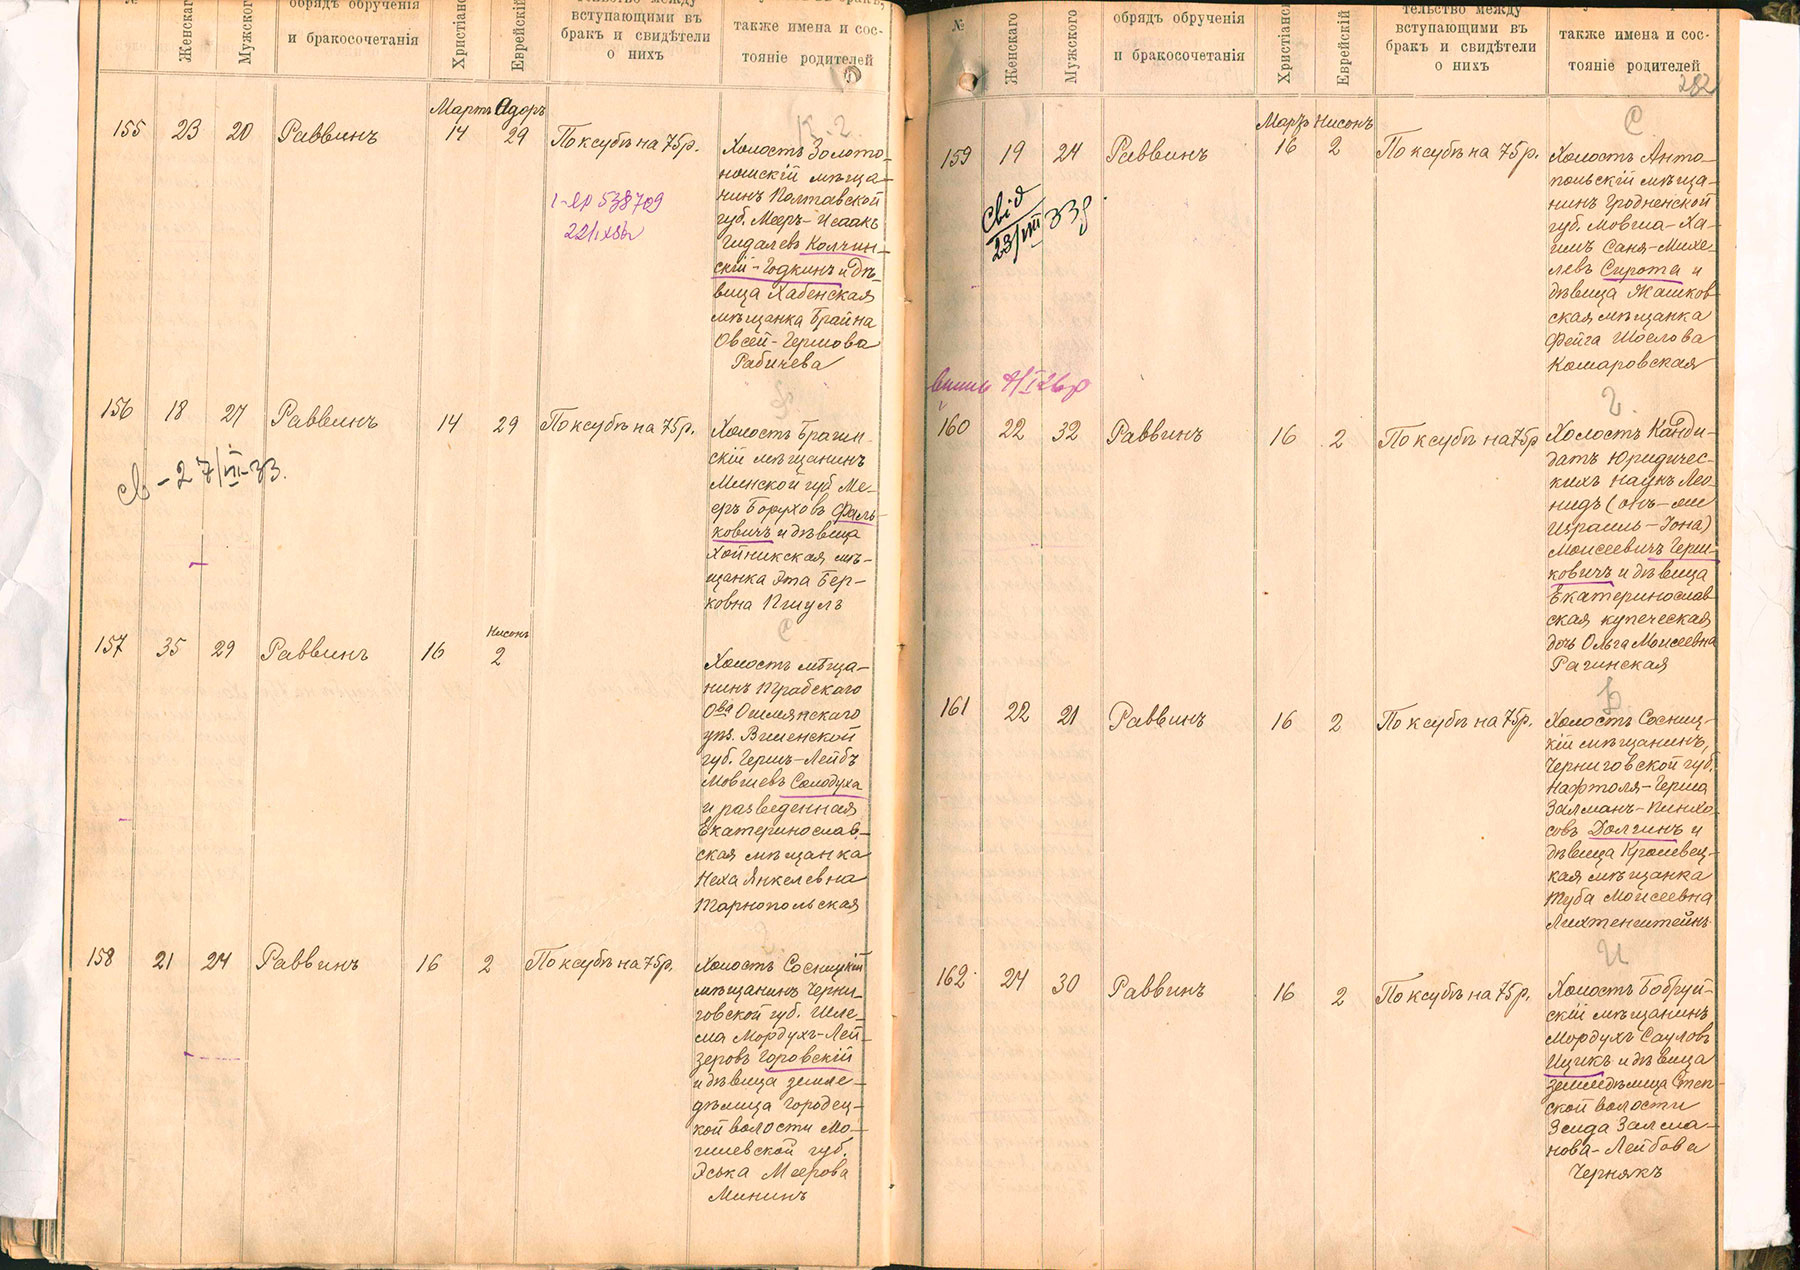 №
Женскаго
Мужского
обрядъ обрученія
и бракосочетанія
Христіанс
Еврейскій
тельство между
вступающими въ
бракъ и свидѣтели
о нихъ
также имена и сос-
тояніе родителей
Мартъ Адоръ
155 23 20 Раввинъ 14 29 По ксубѣ на 75 р.
К. 2.
Холостъ Золото-
ношскій мѣща-
нинъ Полтавской
губ. Мееръ-Исаакъ
Гидалевъ Колчин-
скій-Годкинъ и дѣ-
вица Хабенская
мѣщанка Брайна
Овсей-Гершова
Рабичева
538709
156 18 27 Раввинъ 14 29 По ксубѣ на 75 р.
Ф
Холостъ Брагин-
скій мѣщанинъ
Минской губ. Ме-
еръ Боруховъ Фаль-
ковичъ и дѣвица
Хойникская мѣ-
щанка Эта Бер-
ковна Пшулъ
св - 27/VII-33.
Нисонъ
157 35 29 Раввинъ 16 2
С
Холостъ мѣща-
нинъ Грабскаго
Ова Ошмянскаго
уѣз. Виленской
губ. Гершъ-Лейбъ
Мовшевъ Солодуха
и разведенная
Екатеринослав-
ская мѣщанка
Неха Янкелевна
Тарнопольская
158 21 24 Раввинъ 16 2 По ксубѣ на 75 р.
Холостъ Сосницкій
мѣщанинъ Черни-
говской губ. Шле-
ма Мордухъ-Лей-
зеровъ Горовскій
и дѣвица земле-
дѣлица Городец-
кой волости Мо-
гилевской губ.
Эська Меерова
Мининъ
№
Женскаго
Мужского
обрядъ обрученія
и бракосочетанія
Христіанс
Еврейскій
тельство между
вступающими въ
бракъ и свидѣтели
о нихъ
также имена и сос-
тояніе родителей
282
Мартъ Нисонъ
159 19 24 Раввинъ 16 2 По ксубѣ на 75 р.
С.
Холостъ Анто-
польскій мѣща-
нинъ Гродненской
губ. Мовша-Ха-
имъ Саня-Михе-
левъ Сирота и
дѣвица Жашков-
ская мѣщанка
Фейга Шоелова
Комаровская
23/VIII 33 р
160 22 32 Раввинъ 16 2 По ксубѣ на 75 р
Г.
Холостъ Канди-
датъ Юридичес-
кихъ наукъ Лео-
нидъ (онъ-же
Израиль-Іона)
Моисеевичъ Герш-
ковичъ и дѣвица
Екатеринослав-
ская купеческая
дочь Ольга Моисеевна
Рагинская
161 22 21 Раввинъ 16 2 По ксубѣ на 75 р.
Холостъ Сосниц-
кій мѣщанинъ,
Черниговской губ.
Нафтоля-Герша
Залманъ-Пинхо-
совъ Долгинъ и
дѣвица Кролевец-
кая мѣщанка
Туба Моисеевна
Лихтенштейнъ
162 24 30 Раввинъ 16 2 По ксубѣ на 75 р.
И
Холостъ Бобруй-
скій мѣщанинъ
Мордухъ Сауловъ
Ицикъ и дѣвица
земледѣлица Степ-
ской волости
Зелда Залма-
нова-Лейбова
Чернякъ